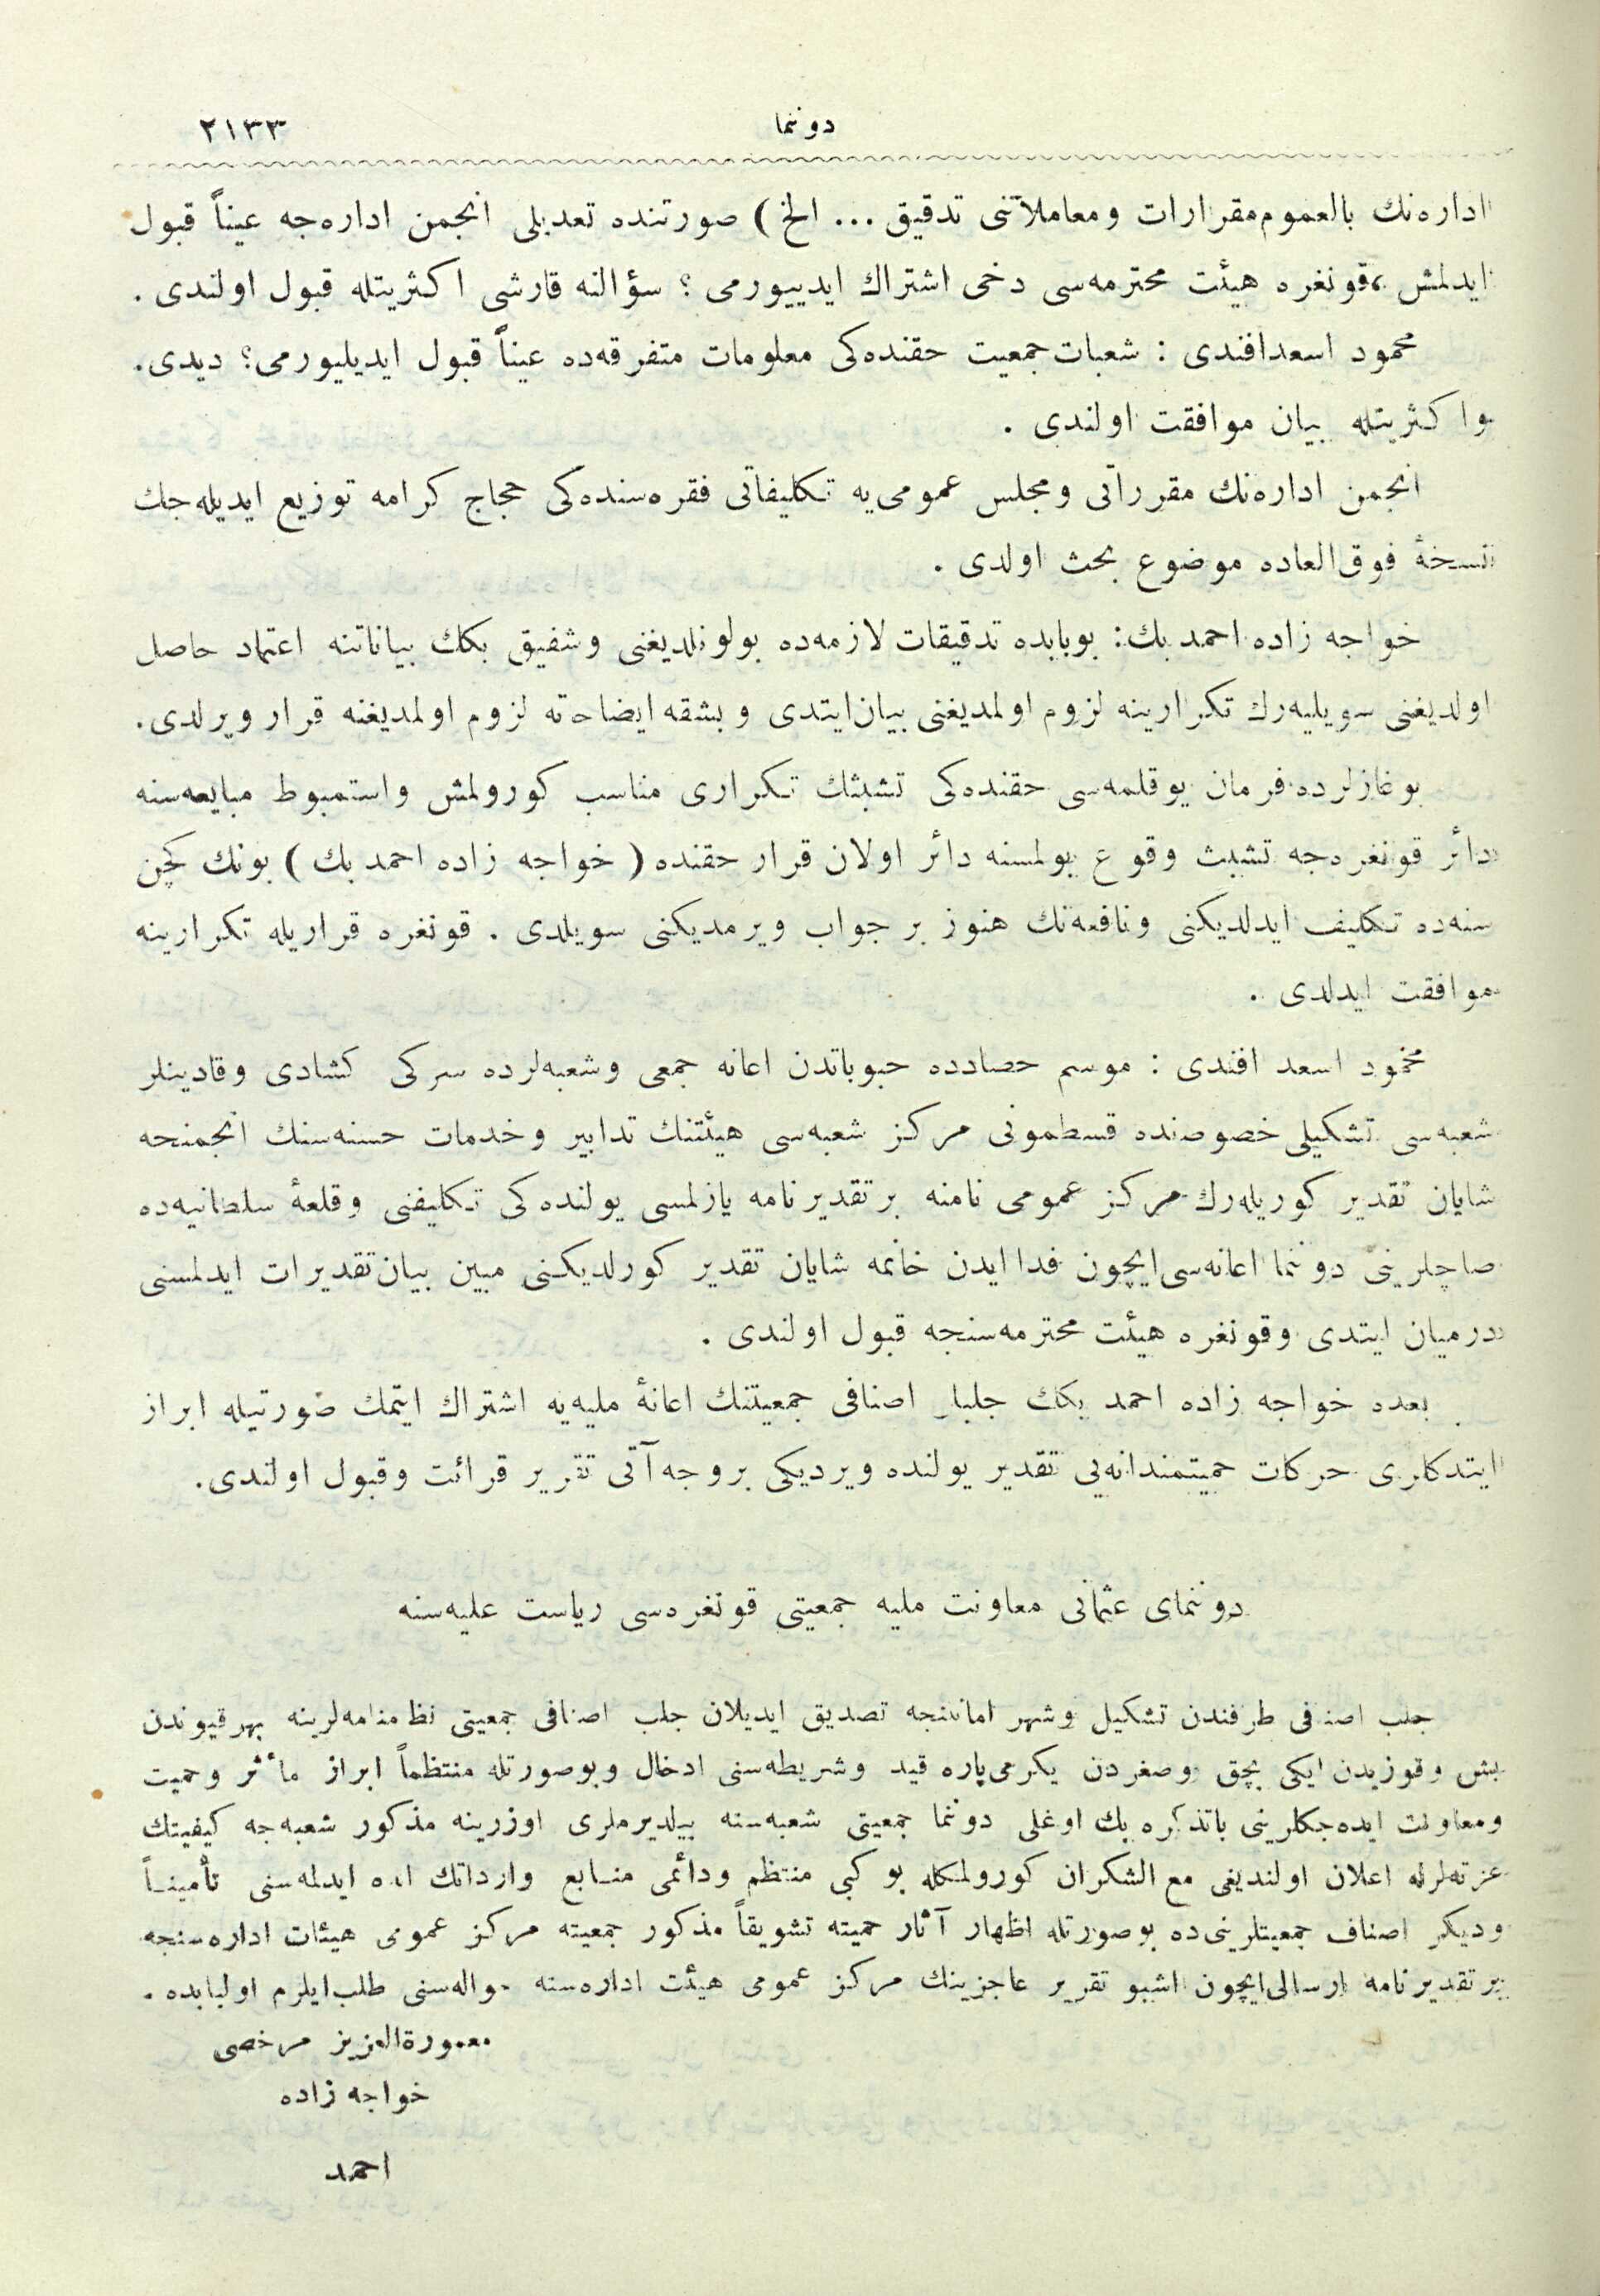 دوننما ٢١٣٣
اداره‌نك بالعموم مقرارات ومعاملاتنى تدقيق ... الخ ) صورتنده تعديلى انجمن اداره‌جه عيناً قبول
ايدلمش ، قونغره هيئت محترمه‌سى دخى اشتراك ايدييورمى ؟ سؤالنه قارشى اكثريتله قبول اولندى .
محمود اسعد افندى : شعبات جمعيت حقنده‌كى معلومات متفرقه‌ده عيناً قبول ايديليورمى؟ ديدى.
واكثريتله بيان موافقت اولندى .
انجمن اداره‌نك مقرراتى ومجلس عمومى‌يه تكليفاتى فقره‌سنده‌كى حجاج كرامه توزيع ايديله‌جك
نسخهٔ فوق‌العاده موضوع بحث اولدى .
خواجه زاده احمد بك: بوبابده تدقيقات لازمه‌ده بولونلديغنى وشفيق بكك بياناتنه اعتماد حاصل
اولديغنى سويليه‌رك تكرارينه لزوم اولمديغنى بيان ايتدى و بشقه ايضاحته لزوم اولمديغنه قرار ويرلدى.
بوغازلرده فرمان يوقلمه‌سى حقنده‌كى تشبثك تكرارى مناسب كورولمش واستمبوط مبايعه‌سنه
دائر قونغره‌جه تشبث وقوع بولمسنه دائر اولان قرار حقنده ( خواجه زاده احمد بك ) بونك كچن
سنه‌ده تكليف ايدلديكنى ونافعه‌نك هنوز بر جواب ويرمديكنى سويلدى . قونغره قراريله تكرارينه
موافقت ايدلدى .
محمود اسعد افندى : موسم حصادده حبوباتدن اعانه جمعى وشعبه‌لرده سركى كشادى وقادينلر
شعبه‌سى تشكيلى خصوصنده قسطمونى مركز شعبه‌سى هيئتنك تدابير وخدمات حسنه‌سنك انجمنجه
شايان تقدير كوريله‌رك مركز عمومى نامنه بر تقديرنامه يازلمسى يولنده‌كى تكليفنى وقلعهٔ سلطانيه‌ده
صاچلرينى دوننما اعانه‌سى ايچون فدا ايدن خانمه شايان تقدير كورلديكنى مبين بيان تقديرات ايدلمسنى
درميان ايتدى وقونغره هيئت محترمه‌سنجه قبول اولندى .
بعده خواجه زاده احمد بكك جلبلر اصنافى جمعيتنك اعانهٔ مليه‌يه اشتراك ايتمك صورتيله ابراز
ايتدكلرى حركات حميتمندانه‌يى تقدير يولنده ويرديكى بروجه آتى تقرير قرائت وقبول اولندى.
دوننماى عثمانى معاونت مليه جمعيتى قونغره‌سى رياست عليه‌سنه
جلب اصنافى طرفندن تشكيل وشهر امانتنجه تصديق ايديلان جلب اصنافى جمعيتى نظامنامه‌لرينه بهر قيوندن
بش وقوزيدن ايكى بچق وصغردن يكرمى پاره قيد وشريطه‌سنى ادخال وبوصورتله منتظماً ابراز مأثر وحميت
ومعاونت ايده‌جكلرينى باتذكره بك اوغلى دوننما جمعيتى شعبه‌سنه بيلديرملرى اوزرينه مذكور شعبه‌جه كيفيتك
غزته‌لرله اعلان اولنديغى مع الشكران كورولمكله بو كبى منتظم ودائمى منابع وارداتك ايدلمه‌سنى تأميناً
وديكر اصناف جمعيتلرينى‌ده بوصورتله اظهار آثار حميته تشويقاً مذكور جمعيته مركز عمومى هيئات اداره‌سنجه
بر تقديرنامه ارسالى ايچون اشبو تقرير عاجزينك مركز عمومى هيئت اداره‌سنه حواله‌سنى طلب ايلرم اولبابده .
معمورة‌العزيز مرخصى
خواجه زاده
احمد